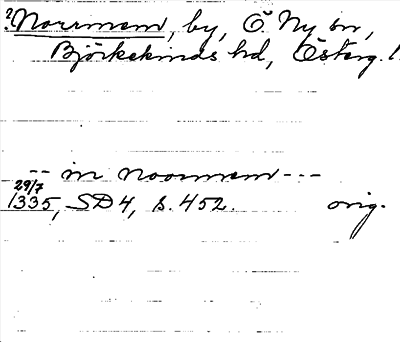 ? Norrmem, by, Ö. Ny sn,
Björkekinds hd, Österg. l.
-- in noormem ---
29/7
1335, SD 4, s. 452. orig.